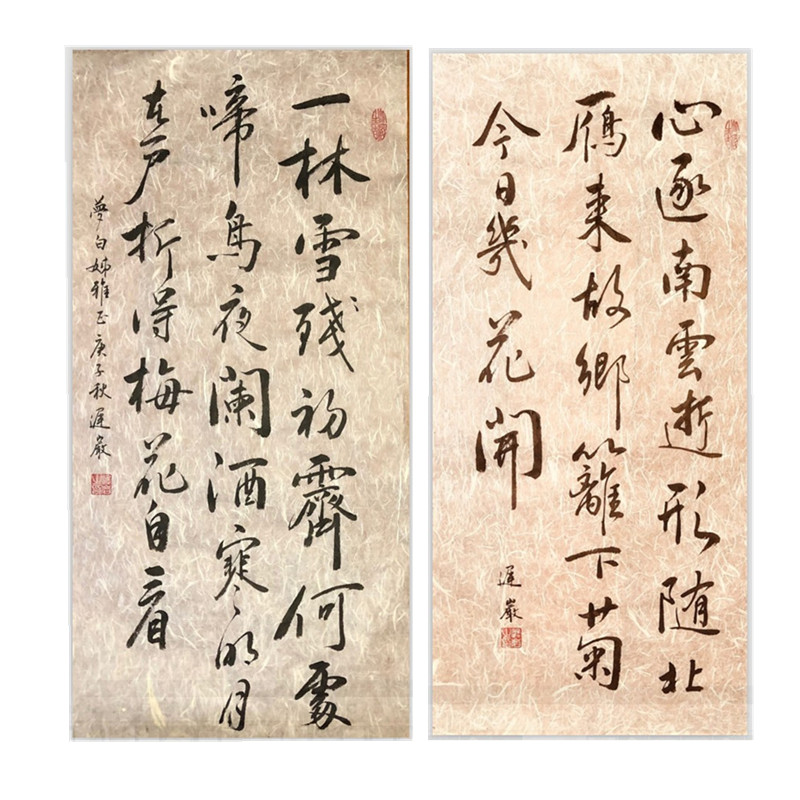 心逐南雲逝形随北
鴈来故鄉籬下菊
今日幾花開
遲巖
一林雪殘初霽何處
啼鳥夜闌酒寒明月
在戶折得梅花自看
夢白姊雅正庚子秋遲巖